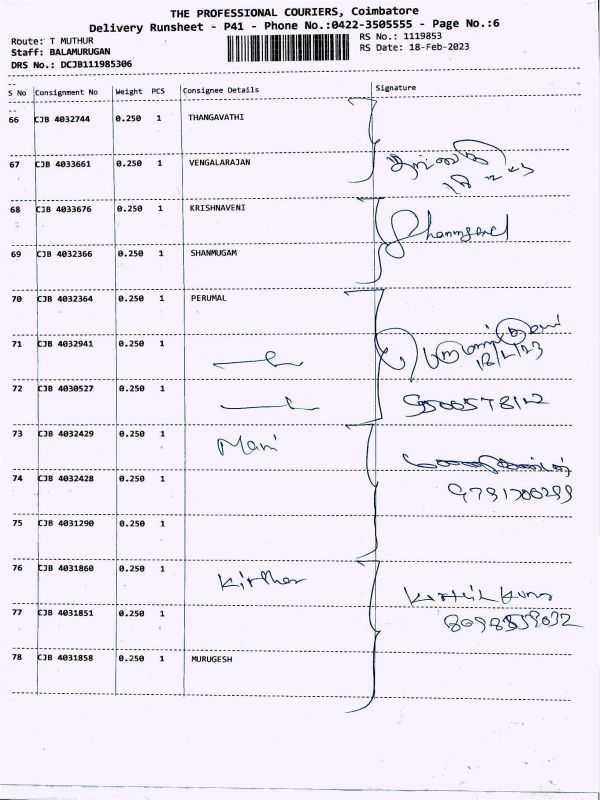 THE PROFESSIONAL COURIERS, Coimbatore
Delivery Runsheet - P41 - Phone No.:0422-3505555 - Page No.:6
Route: T MUTHUR
RS No.: 1119853
Staff: BALAMURUGAN
RS Date: 18-Feb-2023
DRS No.: DCJB111985306
S No Consignment No Weight PCS Consignee Details Signature
66 CJB 4032744 0.250 1 THANGAVATHI
67 CJB 4033661 0.250 1 VENGALARAJAN
68 CJB 4033676 0.250 1 KRISHNAVENI
69 CJB 4032366 0.250 1 SHANMUGAM
70 CJB 4032364 0.250 1 PERUMAL
71 CJB 4032941 0.250 1
18/2/23
72 CJB 4030527 0.250 1
73 CJB 4032429 0.250 1 Mani
74 CJB 4032428 0.250 1
75 CJB 4031290 0.250 1
76 CJB 4031860 0.250 1
77 CJB 4031851 0.250 1
78 CJB 4031858 0.250 1 MURUGESH